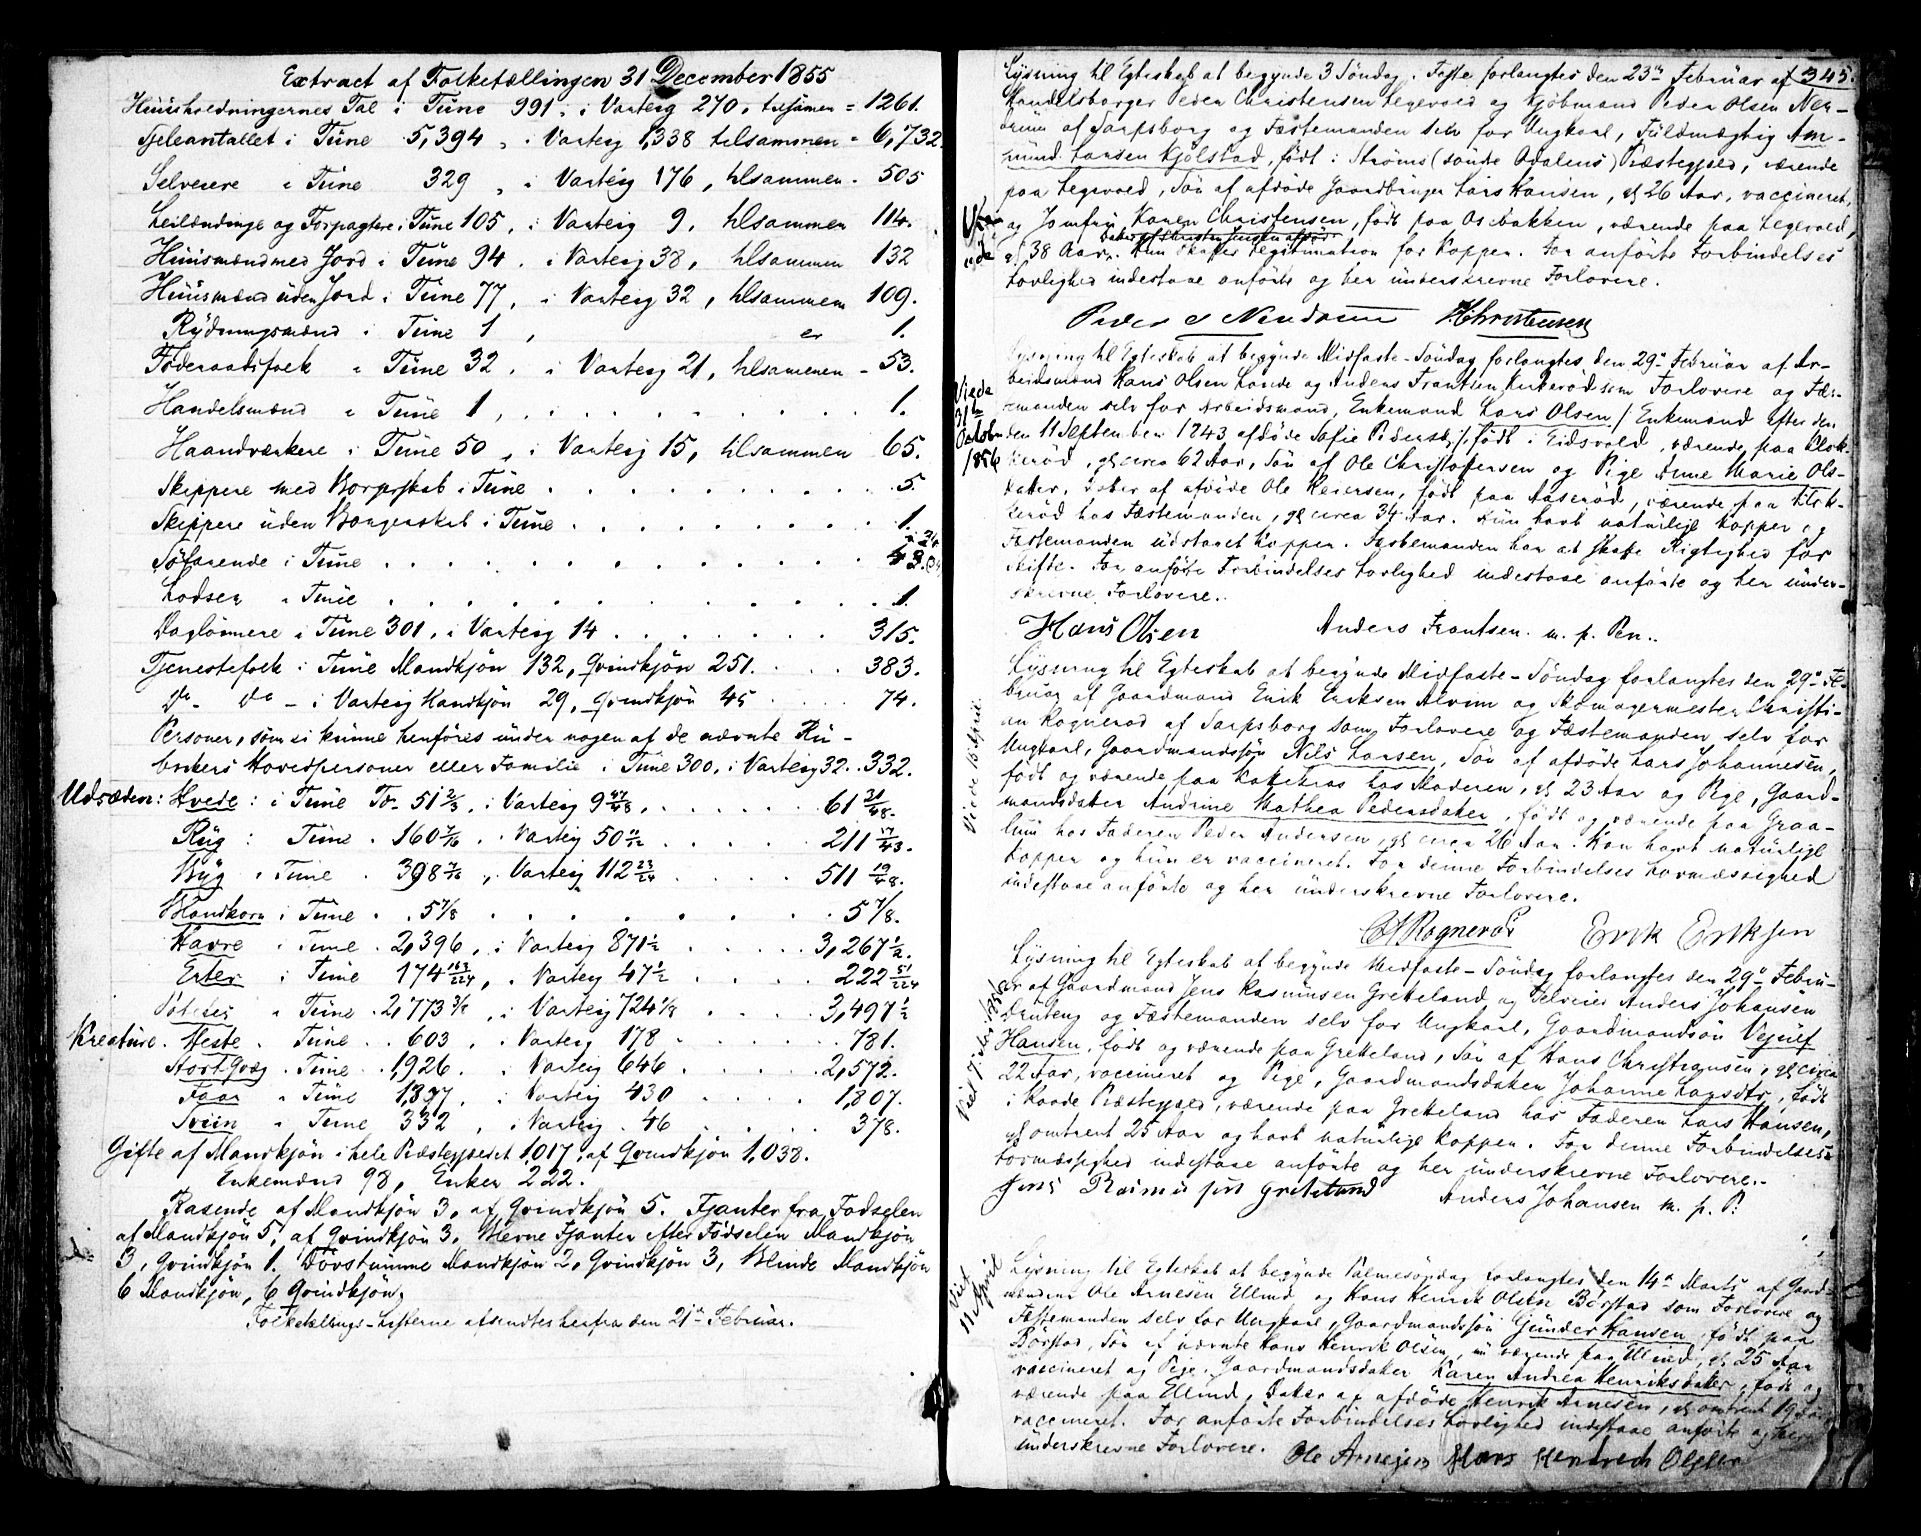 Extract af Folketællingen 31 December 1855
Huusholdningernes Tal i Tune 991, i Varteig 270, tilsamen = 1261.
Sjeleantallet i Tune 5,394, i Varteig 1,338 tilsammen = 6,732.
Selveiere i Tune 329, i Varteig 176, tilsammen - 505
Leilændinge og Forpagtere i Tune 105, i Varteig 9, tilsammen 114.
Huusmænd med Jord i Tune 94, i Varteig 38, tilsammen 132
Huusmænd uden Jord i Tune 77, i Varteig 32, tilsammen 109.
Rydningsmænd i Tune 1, er 1.
Føderaadsfolk i Tune 32, i Varteig 21, tilsammen - 53.
Handelsmænd i Tune 1, 1.
Haandværkere i Tune 50, i Varteig 15, tilsammen 65.
Skippere med Borgerskab i Tune 5.
Skippere uden Borgerskab i Tune 1.
Søfarende i Tune 43.
Lodser i Tune 1.
Daglønnere i Tune 301, i Varteig 14 315.
Tjenestefolk i Tune Mandkjøn 132, Qvindkjøn 251. 383.
do - do - i Varteig Mandkjøn 29, Qvindkjøn 45 74.
Personer, som ei kunne henføres under nogen af de nævnte Ru-
brikers Hovedpersoner eller Familie i Tune 300, i Varteig 32. 332.
Udsæden: Hvede: i Tune Tr. 51 2/3, i Varteig 9 47/48, 61 31/48.
Rug: Tune 160 7/16, Varteig 50 11/12 211 17/48.
Byg i Tune 398 7/16, Varteig 112 23/24 511 19/48.
Blandkorn i Tune 5 7/8 5 7/8.
Havre i Tune 2,396, i Varteig 871 1/2 3,267 1/2.
Erter i Tune 174 163/224, Varteig 47 1/2 222 51/224
Poteter i Tune 2,773 3/8, i Varteig 724 1/8 3,497 1/2
Kreature. Heste i Tune 603, Varteig 178 781.
Stort Qvæg Tune 1,926. Varteig 646 2,572.
Faar i Tune 1,377, Varteig 430 1,807.
Sviin i Tune 332, i Varteig 46 378.
Gifte af Mandkjøn i hele Præstegjeldet 1,017, af Qvindkjøn 1,038.
Enkemænd 98, Enker 222.
Rasende af Mandkjøn 3, af Qvindkjøn 5. Fjanter fra Fødselen
af Mandkjøn 5, af Qvindkjøn 3. Blevne Fjanter efter Fødselen Mandkjøn
3, Qvindkjøn 1. Døvstumme Mandkjøn 2, Qvindkjøn 3, Blinde Mandkjøn
6 Mandkjøn, 6 Qvindkjøn.
Folketællings-Listerne afsendtes herfra den 21de Februar.
345.
Lysning til Egteskab at begynde 3 Søndag i Faste forlangtes den 23de Februar af
Handelsborger Peder Christensen Legevold og Kjøbmand Peder Olsen Nen-
drum af Sarpsborg og Fæstemanden selv for Ungkarl, Fuldmægtig Am-
mund Larsen Kjølstad, født i Strøms (søndre Odalens) Præstegjeld, værende
paa Legevold, Søn af afdøde Gaardbruger Lars Hansen, gl. 26 Aar, vaccineret,
og Jomfru Karen Christensen, født paa Osebakken, værende paa Legevold,
Datter af Christen Jensen
gl. 38 Aar. Hun skaffer Legitimation for Kopper. For anførte Forbindelses
Lovlighed indestaae anførte og her underskrevne Forlovere.
Peder O Nendrum PChristensen
Lysning til Egteskab at begynde Midfaste-Søndag forlangtes den 29de Februar af Ar-
beidsmænd Hans Olsen Lande og Anders Frantsen Kirkerød som Forlovere og Fæs-
temanden selv for Arbeidsmand, Enkemand Lars Olsen /: Enkemand efter den
den 11 September 1843 afdøde Sofie Pedersdt. :/ født i Eidsvold, værende paa Klok-
kerød, gl. circa 62 Aar, Søn af Ole Christofersen og Pige Anne Marie Ols-
datter, Datter af afdøde Ole Reiersen, født paa Aaserød, værende paa Klok-
kerød hos Fæstemanden, gl. circa 34 Aar. Hun havt naturlige Kopper og
Fæstemanden udstaaet Kopper. Fæstemanden har at skaffe Rigtighed for
Skifte. For anførte Forbindelses Lovlighed indestaae anførte og her under-
skrevne Forlovere.
Viede 31te October 1856
Hans Olsen Anders Frantsen m. p. Pen.
Lysning til Egteskab at begynde Midfaste-Søndag forlangtes den 29de Fe-
bruar af Gaardmand Erik Eriksen Alvim og Skomagermester Christi-
an Rognerød af Sarpsborg som Forlovere og Fæstemanden selv for
Ungkarl, Gaardmandssøn Nils Larsen, Søn af afdøde Lars Johannesen,
født og værende paa hos Moderen, gl. 23 Aar og Pige, Gaard-
mandsdatter Andrine Mathea Pedersdatter, født og værende paa Graa-
lum hos Faderen Peder Andersen, gl. circa 26 Aar. Han havt naturlige
Kopper og hun er vaccineret. For denne Forbindelses Lovmæssighed
indestaae anførte og her underskrevne Forlovere.
Viede 18 April
CRognerød Erik Eriksen
Lysning til Egteskab at begynde Midfaste-Søndag forlangtes den 29de Febru-
ar af Gaardmand Jens Rasmussen Grekeland og Selveier Anders Johansen
og Fæstemanden selv for Ungkarl, Gaardmandssøn
Hansen, født og værende paa Grekeland, Søn af Hans Christiansen, gl. circa
22 Aar, vaccineret og Pige, Gaardmandsdatter Johanne Larsdtr, født
i Raade Præstegjeld, værende paa Grekeland hos Faderen Lars Hansen,
gl. omtrent 25 Aar og havt naturlige Kopper. For denne Forbindelses
Lovmæssighed indestaae anførte og her underskrevne Forlovere.
Jens Rasmussen Grekeland Anders Johansen m. p. P.
Viet 11 April
Lysning til Egteskab at begynde Palmesøndag forlangtes den 14de Marts af Gaard-
mændene Ole Arnesen Ellind og Hans Henrik Olsen Børstad som Forlovere og
Fæstemanden selv for Ungkarl, Gaardmandssøn Gunder Hansen, født paa
Børstad, Søn af nævnte Hans Henrik Olsen, nu værende paa Ellind, gl. 25 Aar
vaccineret og Pige, Gaardmandsdatter Karen Andrea Henriksdatter, født og
værende paa Ellind, Datter af afdøde Henrik Arnesen, gl. omtrent 19 Aar
vaccineret. For anførte Forbindelses Lovlighed indestaae anførte og her
underskrevne Forlovere.
Ole Arnesen Hans Hendrech Olsen